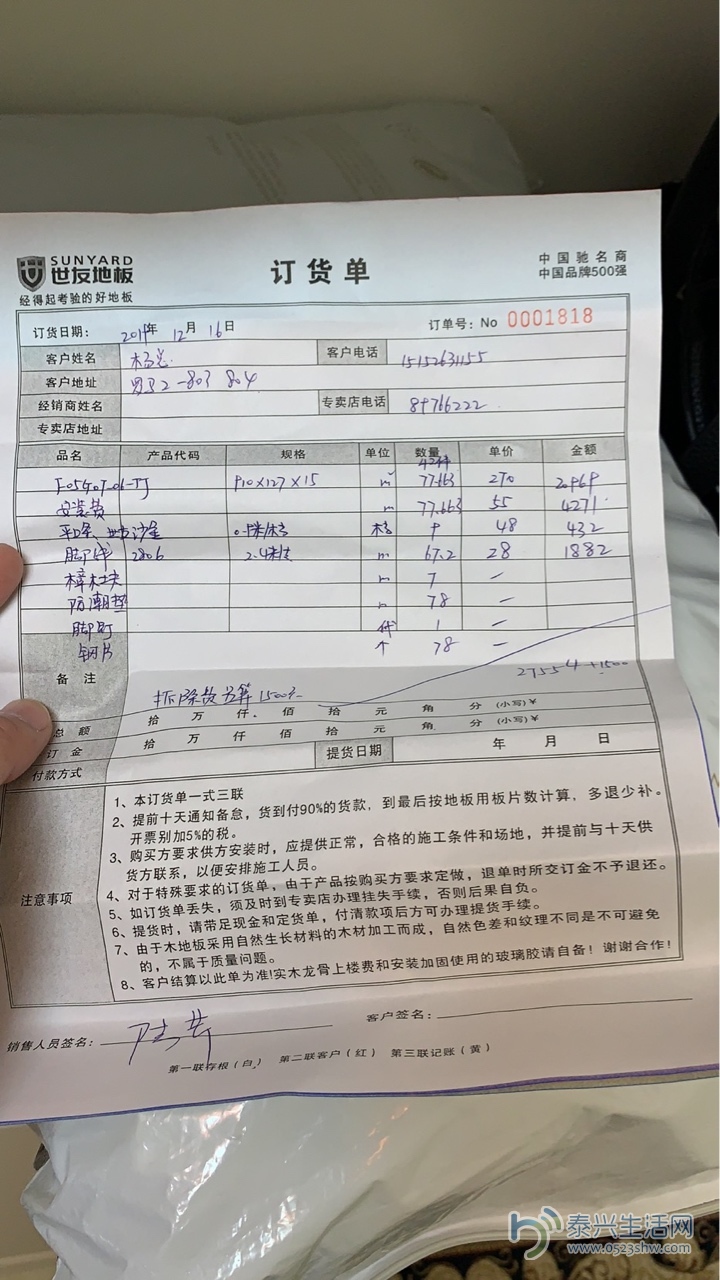 SUNYARD
世友地板
经得起考验的好地板
订货单
中国驰名商
中国品牌500强
订货日期： 2019年 12月 16日
订单号：No 0001818
客户姓名 杨总
客户电话 15152631155
客户地址 2-803 804
经销商姓名
专卖店电话 87766222
专卖店地址
品名 产品代码 规格 单位 数量 单价 金额
910×127×15 m² 77.663 270 20969
安装费 m 77.663 55 4271
平口条、 9 48 432
脚线 2806 2.4米/支 m 67.2 28 1882
樟木块 7 —
防潮垫 78 —
脚钉 袋 1 —
钢片 个 78 —
备注
27554+1500
拆除费另算1500
总额 拾 万 仟 佰 拾 元 角 分 (小写)¥
订金 拾 万 仟 佰 拾 元 角 分 (小写)¥
付款方式
提货日期 年 月 日
注意事项
1、本订货单一式三联
2、提前十天通知备怠，货到付90%的货款，到最后按地板用板片数计算，多退少补。
开票别加5%的税。
3、购买方要求供方安装时，应提供正常，合格的施工条件和场地，并提前与十天供
货方联系，以便安排施工人员。
4、对于特殊要求的订货单，由于产品按购买方要求定做，退单时所交订金不予退还。
5、如订货单丢失，须及时到专卖店办理挂失手续，否则后果自负。
6、提货时，请带足现金和定货单，付清款项后方可办理提货手续。
7、由于木地板采用自然生长材料的木材加工而成，自然色差和纹理不同是不可避免
的，不属于质量问题。
8、客户结算以此单为准!实木龙骨上楼费和安装加固使用的玻璃胶请自备！谢谢合作！
销售人员签名：
客户签名：
第一联存根（白） 第二联客户（红） 第三联记账（黄）
泰兴生活网
www.0523shw.com